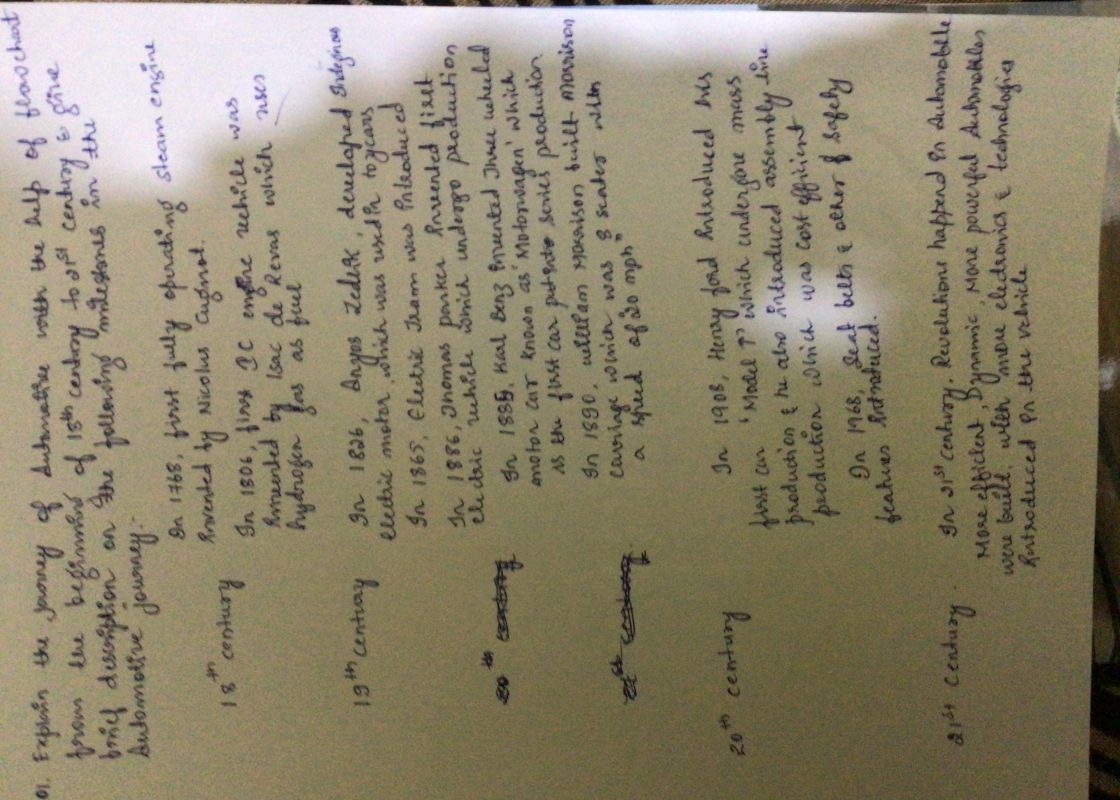 01. Explain the journey of Automotive with the help of flowchart
from the beginning of 18th century to 21st century & give
brief description on the following milestones in the
Automotive journey.
18th century
In 1768, first fully operating steam engine
invented by Nicolus Cugnot.
In 1806, first IC engine vechicle was
invented by Isac de Revas which uses
hydrogen gas as fuel
19th century
In 1826, Anyos Jedlik, developed
electric motor, which was used in toycars
In 1865, Electric Tram was introduced
In 1886, Thomas parker invented first
electric vehicle which undergo production
In 1885, Karl Benz invented three wheeled
motor car known as 'Motorwagen' which
is the first car put into series production
In 1890, william Morrison built Morrison
carriage which was 8 seater with
a speed of 20 mph"
20th century
In 1908, Henry ford introduced his
first car 'Model T' which undergone mass
production & he also introduced assembly line
production which was cost efficient
In 1968, Seat belts & other of safety
features introduced.
21st century.
In 21st century, Revolutione happend in Automobile
More efficient, Dynamic, More powerful Automobiles
were built. with more electronics & technologies
introduced in the vehicle